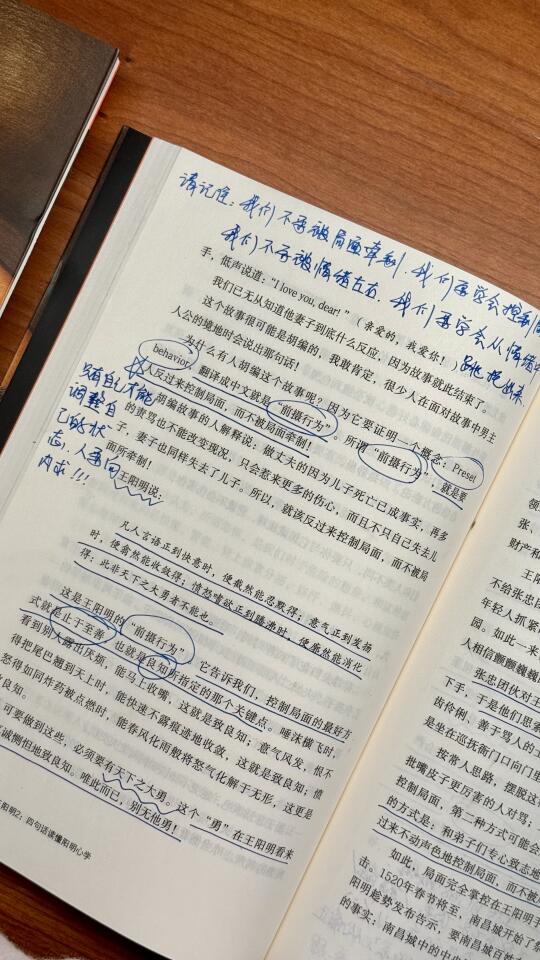 请记住：我们不要被局面牵制，我们要学会控制局
我们不要被情绪左右，我们要学会从情绪中
跳出来
手，低声说道：“I love you, dear!”（亲爱的，我爱你！）
我们已无从知道他妻子到底什么反应，因为故事就此结束了。
这个故事很可能是胡编的，我敢肯定，很少人在面对故事中男主
人公的境地时会说出那句话！
为什么有人胡编这个故事呢？因为它要证明一个概念：Preset
behavior，翻译成中文就是“前摄行为”。所谓“前摄行为”，就是要
人反过来控制局面，而不被局面牵制！
胡编故事的人解释说：做丈夫的因为儿子死亡已成事实，再多
的谴骂也不能改变现况，只会惹来更多的伤心，而且不只自己失去儿
子，妻子也同样失去了儿子。所以，就该反过来控制局面，而不被局
面所牵制！
只有自己才能
调整自
己的状
态，人要向
内求！！！
王阳明说：
凡人言语正到快意时，便截然能忍默得；意气正到发扬
时，便翕然能收敛得；愤怒嗜欲正到腾沸时，便廓然能消化
得：此非天下之大勇者不能也。
这是王阳明的“前摄行为”，它告诉我们，控制局面的最好方
式就是止于至善，也就是良知所指定的那个关键点。唾沫横飞时，
看到别人露出厌烦，能马上收嘴，这就是致良知；意气风发，恨不
得把尾巴翘到天上时，能快速不露痕迹地收敛，这就是致良知；愤
怒得如同炸药被点燃时，能春风化雨般将怒气化解于无形，这更是
致良知。
可要做到这些，必须要有天下之大勇。这个“勇”在王阳明看来
诚恻怛地致良知。唯此而已，别无他勇！
阳明2：四句话读懂阳明心学
张、
财产和
王
不给张忠团
年轻人抓紧
园。如此一来
人相信颤颤巍巍
张忠团伙对王
下手，于是他们思索
齿伶俐、善于骂人的士
是坐在巡抚衙门口向门里
按常人思路，摆脱这种
批嘴皮子更厉害的人对骂；
控制局面，第二种方式可能会
的方式是：和弟子们专心致志地
过来不动声色地控制局面，而不被
如此，局面完全掌控在王阳明手
击。1520年春节将至，南昌城开始了祭
阳明趁势发布告示，要南昌城百姓
的事实：南昌城中的中央